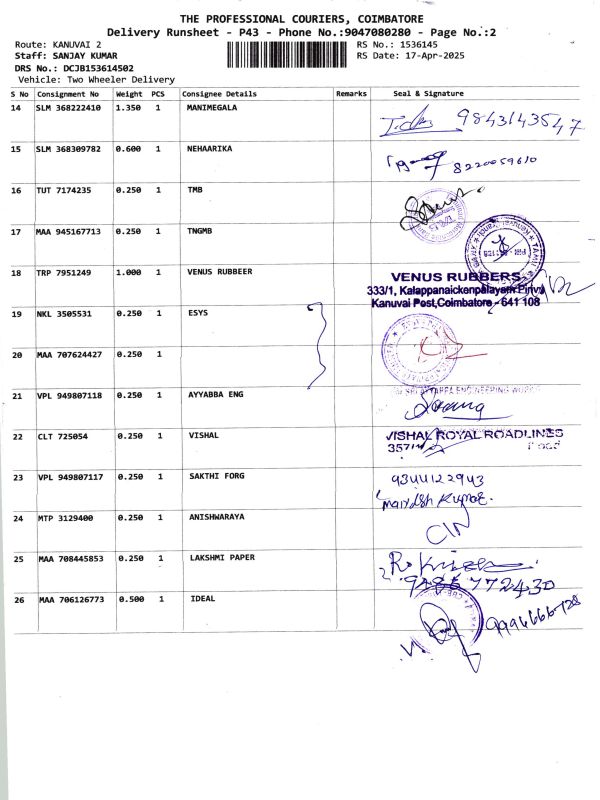 THE PROFESSIONAL COURIERS, COIMBATORE
Delivery Runsheet - P43 - Phone No.:9047080280 - Page No.:2
Route: KANUVAI 2
RS No.: 1536145
Staff: SANJAY KUMAR
RS Date: 17-Apr-2025
DRS No.: DCJB153614502
Vehicle: Two Wheeler Delivery
S No Consignment No Weight PCS Consignee Details Remarks Seal & Signature
14 SLM 368222410 1.350 1 MANIMEGALA
9843143547
15 SLM 368309782 0.600 1 NEHAARIKA
8220059610
16 TUT 7174235 0.250 1 TMB
17 MAA 945167713 0.250 1 TNGMB
18 TRP 7951249 1.000 1 VENUS RUBBEER
VENUS RUBBERS
333/1, Kalappanaickenpalayam Pirivu
Kanuvai Post, Coimbatore - 641 108
19 NKL 3505531 0.250 1 ESYS
20 MAA 707624427 0.250 1
21 VPL 949807118 0.250 1 AYYABBA ENG
ENGINEERING WORKS
22 CLT 725054 0.250 1 VISHAL
VISHAL ROYAL ROADLINES
23 VPL 949807117 0.250 1 SAKTHI FORG
9344122943
24 MTP 3129400 0.250 1 ANISHWARAYA
25 MAA 708445853 0.250 1 LAKSHMI PAPER
26 MAA 706126773 0.500 1 IDEAL